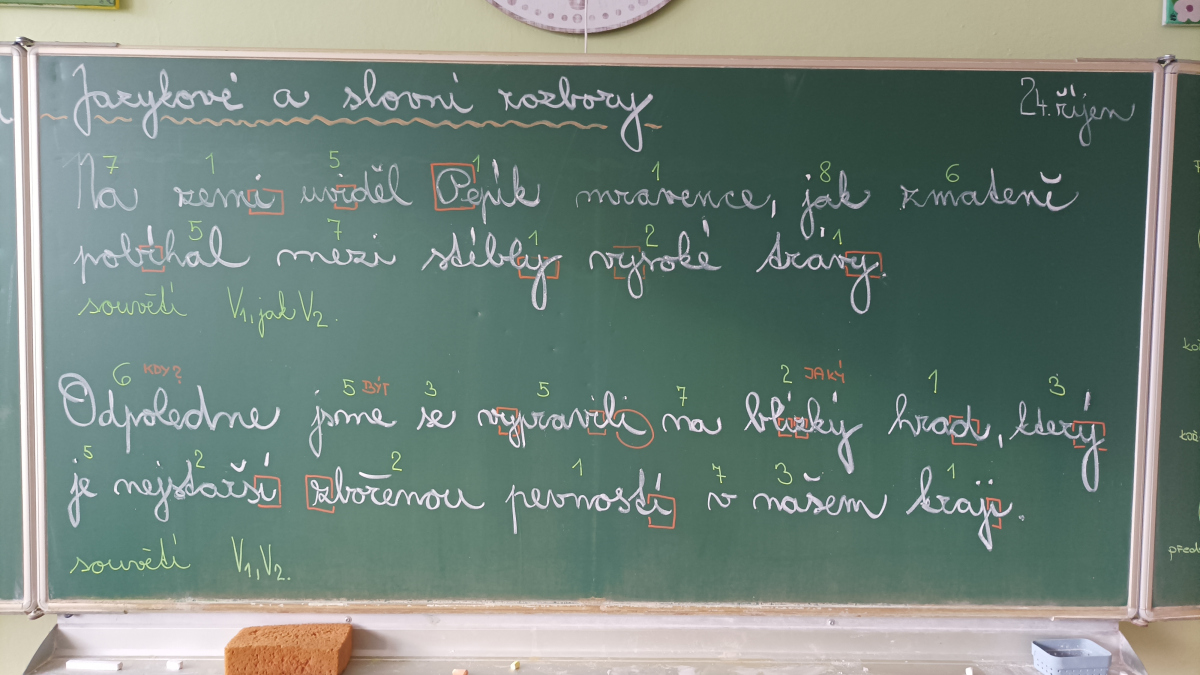 Jazykové a slovní rozbory
24. říjen
7 1 5 1 1 8 6
Na zemi uviděl Pepík mravence, jak zmateně
5 7 1 2 1
pobíhal mezi stébly vysoké trávy.
souvětí V1, jak V2.
6 KDY? 5 BÝT 3 5 7 2 JAKÝ 1 3
Odpoledne jsme se vypravili na blízký hrad, který
5 2 2 1 7 3 1
je nejstarší zbořenou pevností v našem kraji.
souvětí V1, V2.